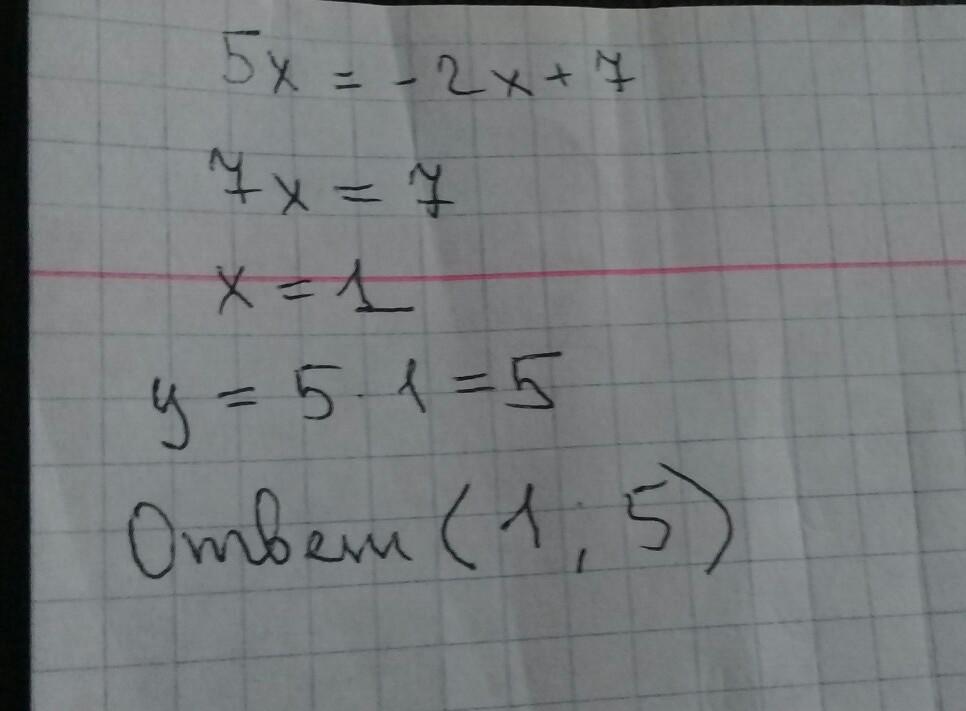 5x = -2x + 7
7x = 7
x = 1
y = 5 · 1 = 5
Ответ (1; 5)